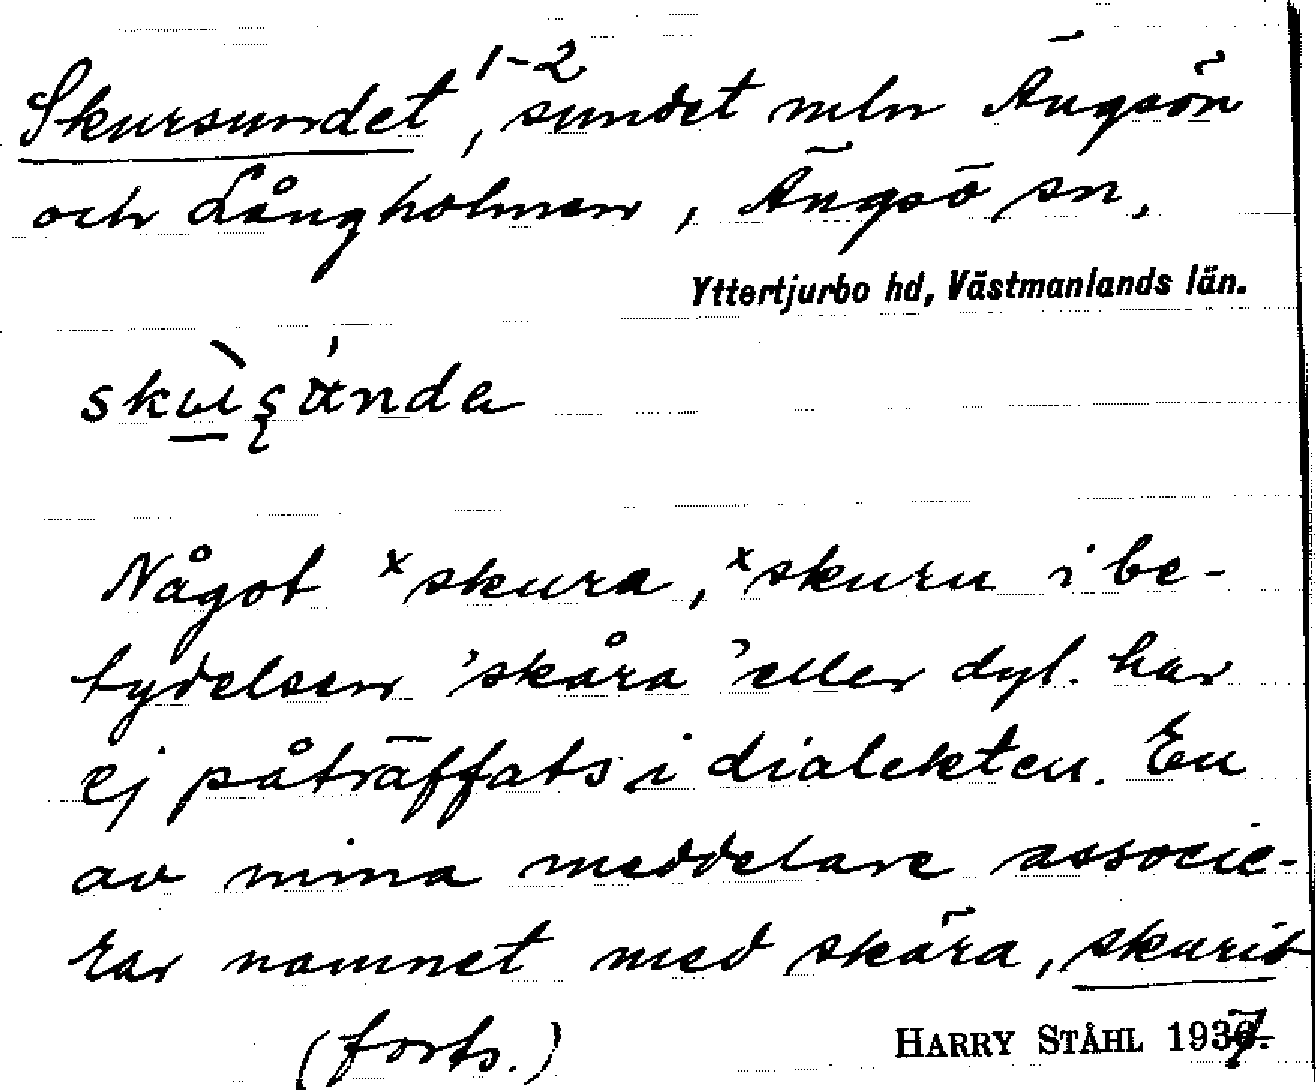 Skursundet¹⁻², sundet mln Ängsön
och Långholmen, Ängsö sn.
Yttertjurbo hd, Västmanlands län.
Något ˣskura, ˣskuru i be-
tydelsen 'skåra' eller dyl. har
ej påträffats i dialekten. En
av mina meddelare associe-
rar namnet med skära, skurit
(forts.) HARRY STÅHL 1937.